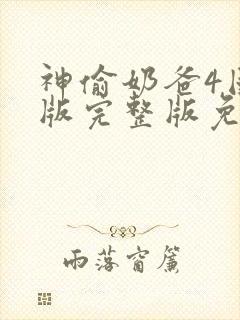 神偷奶爸4国
版完整版免
雨落窗帘